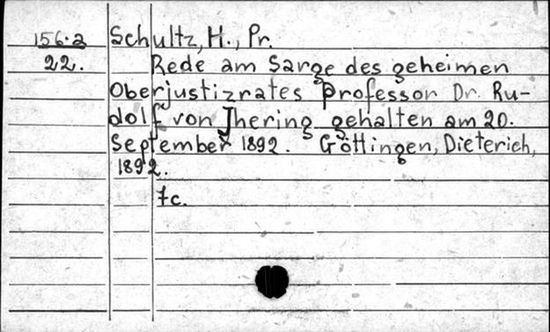 156.a Schultz, H., Pr.
22. Rede am Sarge des geheimen
Oberjustizrates Professor Dr. Ru-
dolf von Jhering gehalten am 20.
September 1892. Göttingen, Dieterich,
1892.
7c.